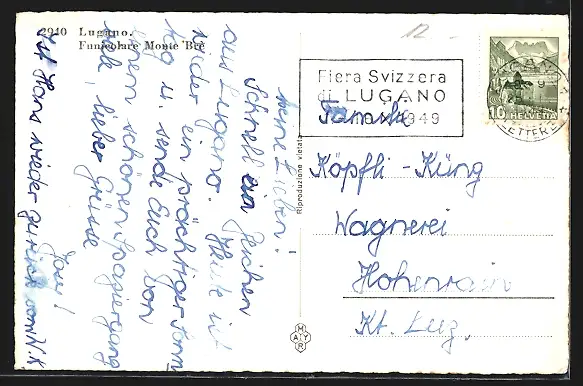 2940 Lugano.
Funicolare Monte Brè
meine Lieben!
Schnell ein Zeichen
aus Lugano. Heute ist
wieder ein prächtiger Sonn
tag u. sende Euch von
einem schönen Spaziergang
viele, lieber Grüsse
Ist Hans wieder zurück vom
Riproduzione vietata
MAYR
12.-
Fiera Svizzera
di LUGANO
1949
HELVETIA
10
LETTERE
Familie
Köpfli - Küng
Wagnerei
Hohenrain
Kt. Luz.